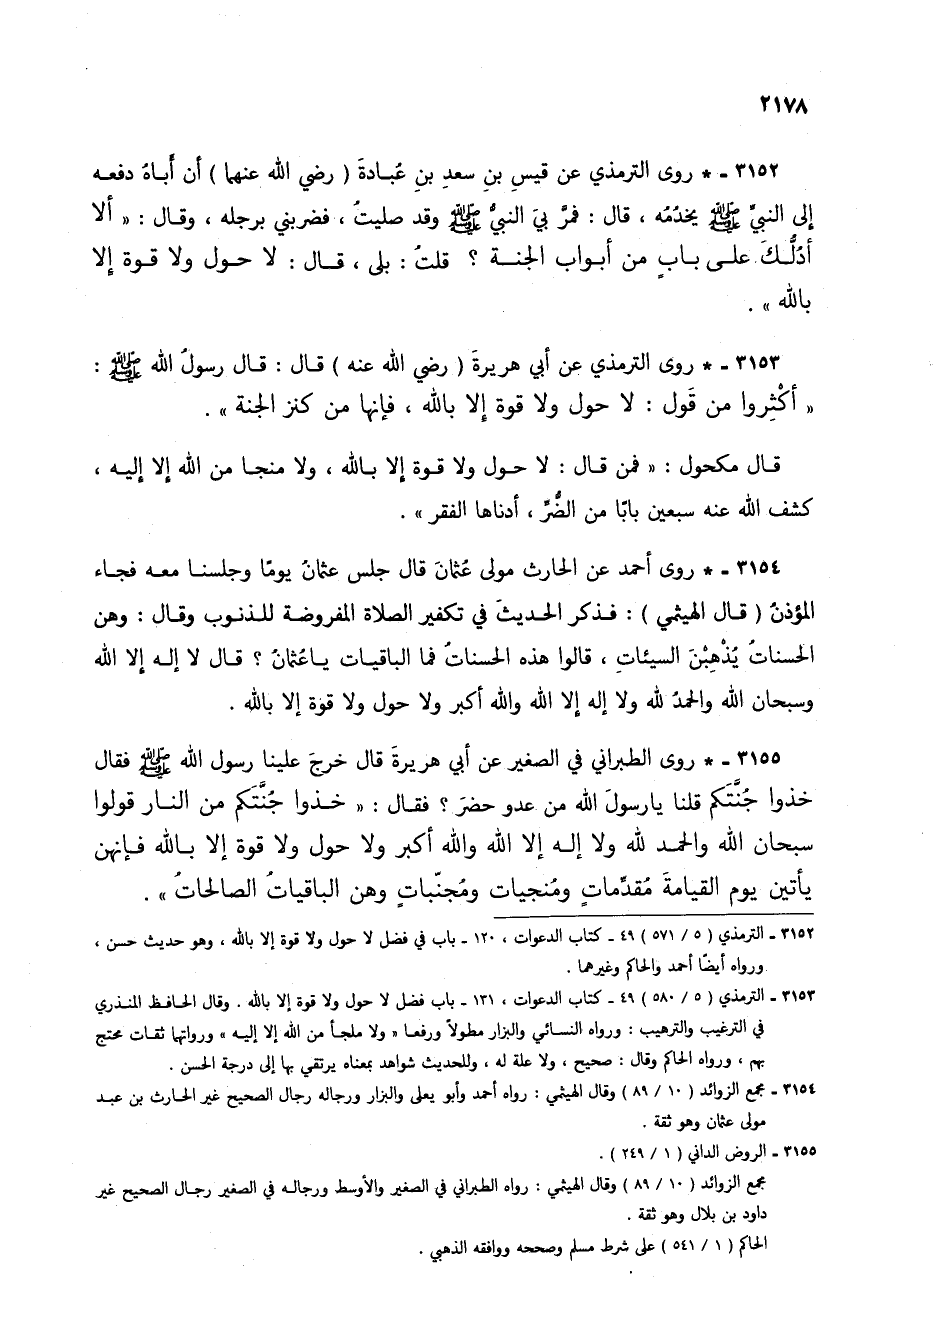 ٢١٧٨
٣١٥٢ - * روى الترمذي عن قيسِ بنِ سعدِ بنِ عُبادةَ ( رضي الله عنهما ) أن أَباهُ دفعـه
إلى النبيِّ ﷺ يخدُمُه ، قال : فمرَّ بيَ النبيُّ ﷺ وقد صليتُ ، فضربني برجله ، وقـال : « ألا
أدُلُّـكَ علـى بـابٍ من أبـواب الجنـة ؟ قلتُ : بلى ، قـال : لا حـول ولا قـوة إلا
بالله » .
٣١٥٣ - * روى الترمذي عن أبي هريرةَ ( رضي الله عنه ) قـال : قـال رسولُ الله ﷺ :
« أكْثِروا من قَول : لا حول ولا قوة إلا بالله ، فإنها من كنز الجنة » .
قـال مكحول : « فمن قـال : لا حـول ولا قـوة إلا بـالله ، ولا منجـا من الله إلا إليـه ،
كشف الله عنه سبعين بابًا من الضُّرِّ ، أدناها الفقر » .
٣١٥٤ - * روى أحمد عن الحارث مولى عُثمانَ قال جلس عثمانُ يومًا وجلسنـا معـه فجـاء
المؤذنُ ( قال الهيثمي ) : فـذكر الحـديثَ في تكفير الصلاة المفروضة للـذنوب وقـال : وهن
الحسناتُ يُذْهِبْنَ السيئاتِ ، قالوا هذه الحسناتُ فما الباقيات ياعُثمانُ ؟ قـال لا إلـه إلا الله
وسبحان الله والحمدُ لله ولا إله إلا الله والله أكبر ولا حول ولا قوة إلا بالله .
٣١٥٥ - * روى الطبراني في الصغير عن أبي هريرةَ قال خرجَ علينا رسول الله ﷺ فقال
خذوا جُنَّتَكم قلنا يارسولَ الله من عدو حضرَ ؟ فقـال : « خـذوا جُنَّتَكم من النـار قولوا
سبحان الله والحمـد لله ولا إلـه إلا الله والله أكبر ولا حول ولا قوة إلا بـالله فـإنهن
يـأتين يوم القيامةَ مُقدِّماتٍ ومُنجيات ومُجنّباتٍ وهن الباقياتُ الصالحاتُ » .
٣١٥٢ - الترمذي ( ٥ / ٥٧١ ) ٤٩ - كتاب الدعوات ، ١٢٠ - باب في فضل لا حول ولا قوة إلا بالله ، وهو حديث حسن ،
ورواه أيضًا أحمد والحاكم وغيرهما .
٣١٥٣ - الترمذي ( ٥ / ٥٨٠ ) ٤٩ - كتاب الدعوات ، ١٣١ - باب فضل لا حول ولا قوة إلا بالله . وقال الحـافـظ المنـذري
في الترغيب والترهيب : ورواه النسائي والبزار مطولاً ورفعـا « ولا ملجـأ من الله إلا إليـه » ورواتهـا ثقـات محتج
بهم ، ورواه الحاكم وقال : صحيح ، ولا علة له ، وللحديث شواهد بمعناه يرتقي بها إلى درجة الحسن .
٣١٥٤ - مجمع الزوائد ( ١٠ / ٨٩ ) وقال الهيثمي : رواه أحمد وأبو يعلى والبزار ورجاله رجال الصحيح غير الحارث بن عبـد
مولى عثمان وهو ثقة .
٣١٥٥ - الروض الداني ( ١ / ٢٤٩ ) .
مجمع الزوائد ( ١٠ / ٨٩ ) وقال الهيثمي : رواه الطبراني في الصغير والأوسط ورجالـه في الصغير رجـال الصحيح غير
داود بن بلال وهو ثقة .
الحاكم ( ١ / ٥٤١ ) على شرط مسلم وصححه ووافقه الذهبي .